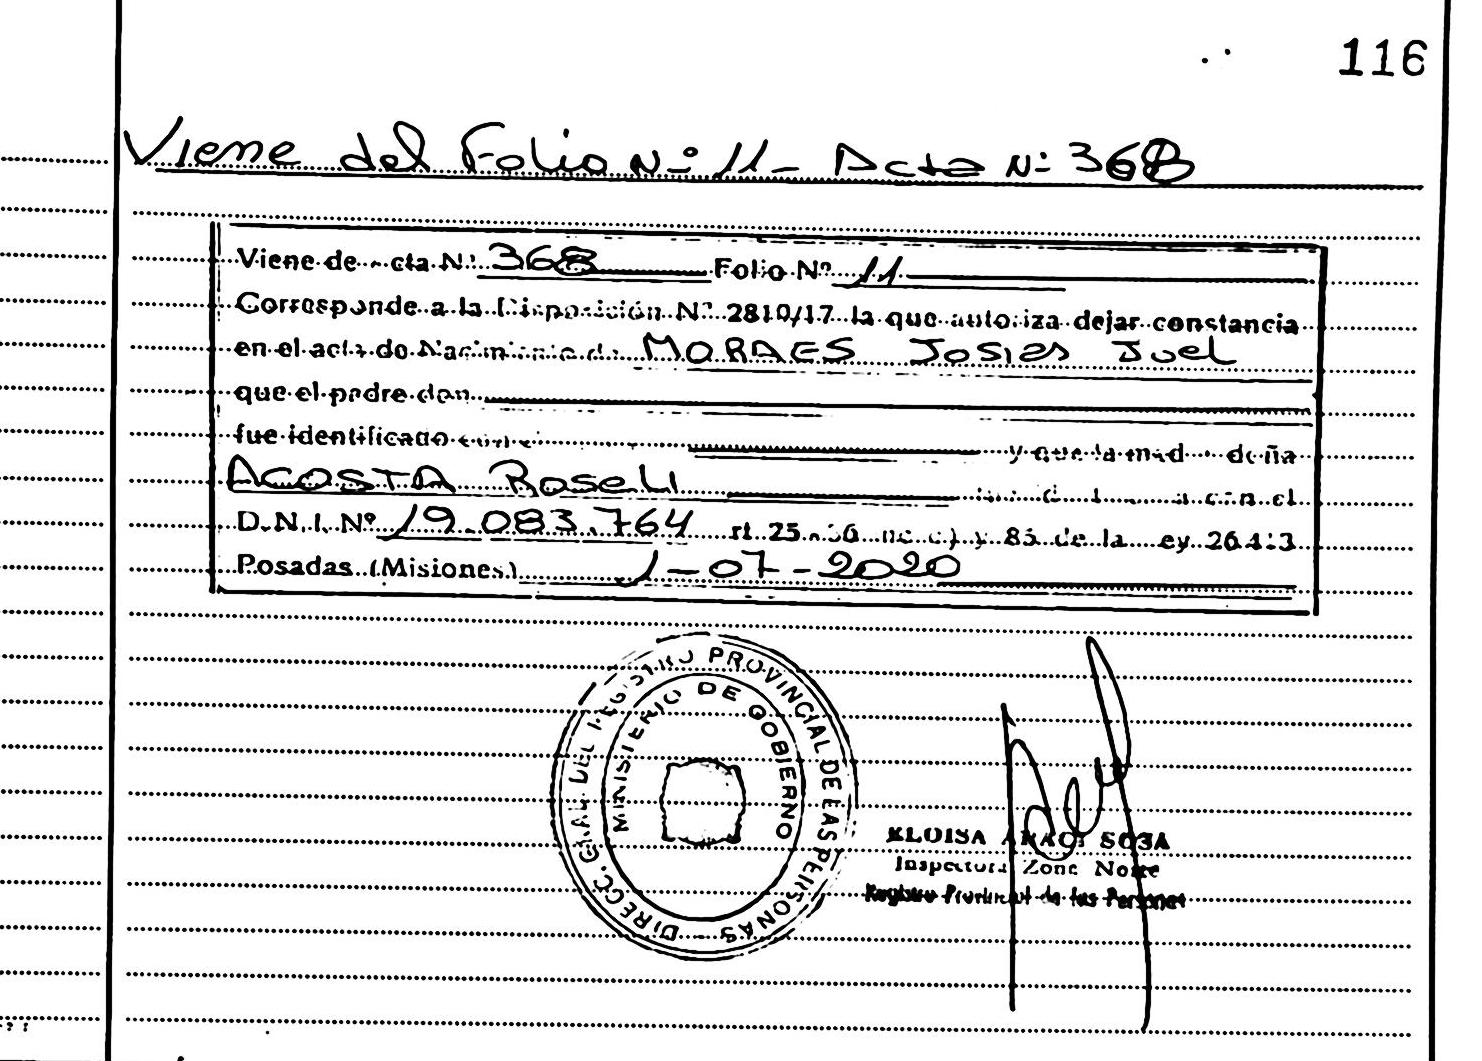 116
Viene del Folio Nº 11 - Acta Nº 368
Viene de cta Nº 368 Folio Nº 11
Corresponde a la Disposición Nº 2810/17 la que autoriza dejar constancia
en el acta de Nacimiento de MORAES Josias Joel
que el padre don
fue identificado con y que la mad doña
ACOSTA Roseli con el
D.N.I. Nº 19.083.764 rt. 25 y 85 de la ey 26413
Posadas (Misiones) 1-07-2020
DIRECC. GRAL. DEL REGISTRO PROVINCIAL DE LAS PERSONAS
MINISTERIO DE GOBIERNO
ELOISA SOSA
Inspectora Zona Norte
Registro Provincial de las Personas